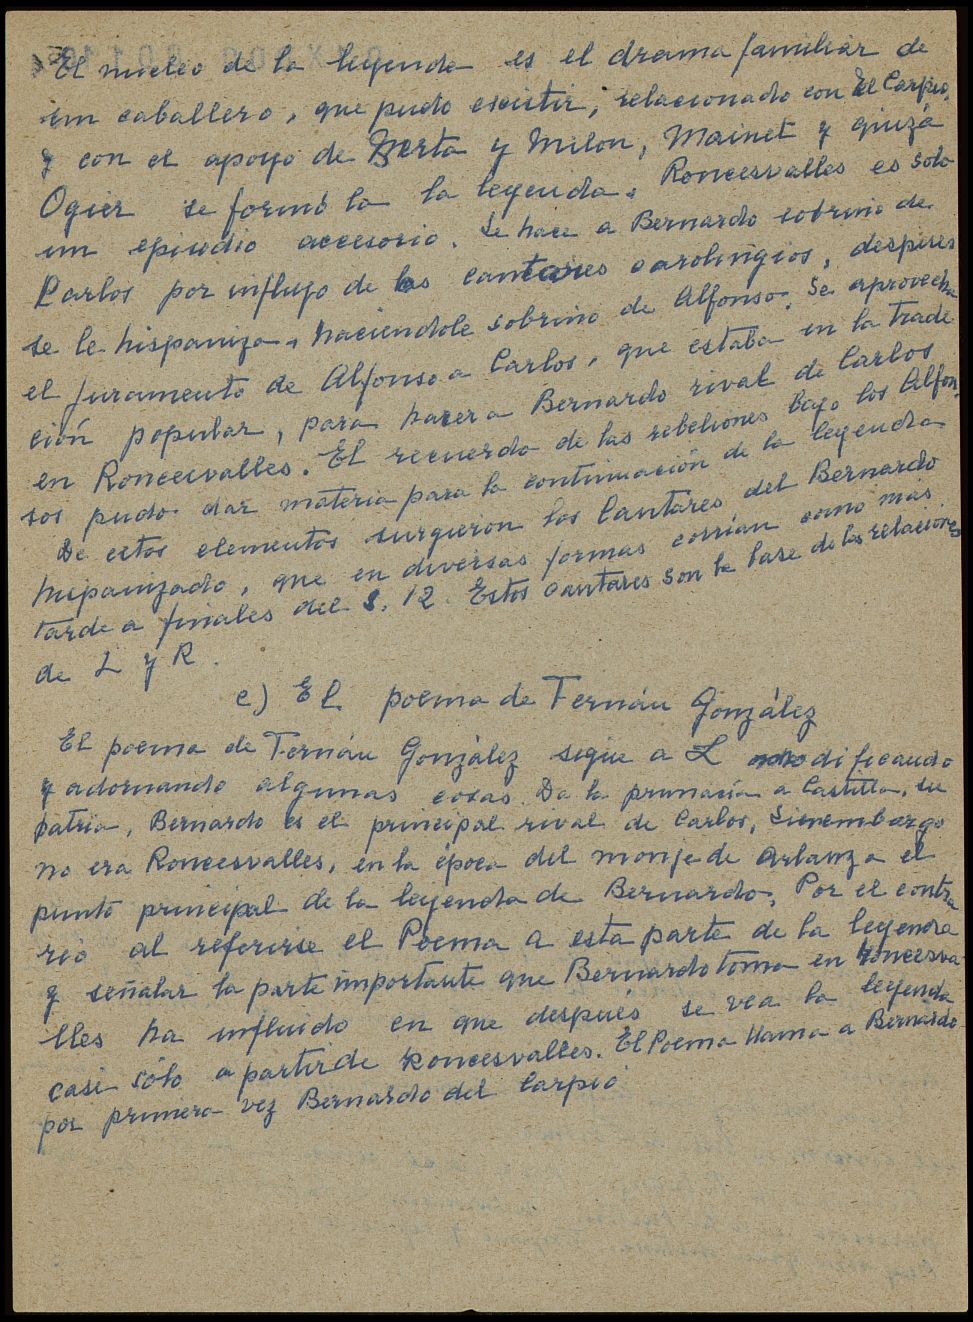 El nucleo de la leyenda es el drama familiar de
un caballero, que pudo existir, relacionado con El Carpio,
y con el apoyo de Berta y Milon, Mainet y quizá
Ogier se formó la la leyenda. Roncesvalles es solo
un episodio accesorio. Se hace a Bernardo sobrino de
Carlos por influjo de los cantares carolingios, despues
se le hispaniza, haciendole sobrino de Alfonso. Se aprovecha
el juramento de Alfonso a Carlos, que estaba en la tradi
ción popular, para hacer a Bernardo rival de Carlos
en Roncesvalles. El recuerdo de las rebeliones bajo los Alfon
sos pudo dar materia para la continuación de la leyenda
De estos elementos surgieron los Cantares del Bernardo
hispanizado, que en diversas formas corrían como más
tarde a finales del s. 12. Estos cantares son la base de las relaciones
de L y R.
e) El poema de Fernán González
El poema de Fernán González sigue a L modificando
y adornando algunas cosas. Da la primacía a Castilla, su
patria, Bernardo es el principal rival de Carlos, Sin embargo
no era Roncesvalles, en la época del monje de Arlanza el
punto principal de la leyenda de Bernardo. Por el contra
rio al referirse el Poema a esta parte de la leyenda
y señalar la parte importante que Bernardo toma en Roncesva
lles ha influido en que después se vea la leyenda
casi sólo a partir de Roncesvalles. El Poema llama a Bernardo
por primera vez Bernardo del Carpio